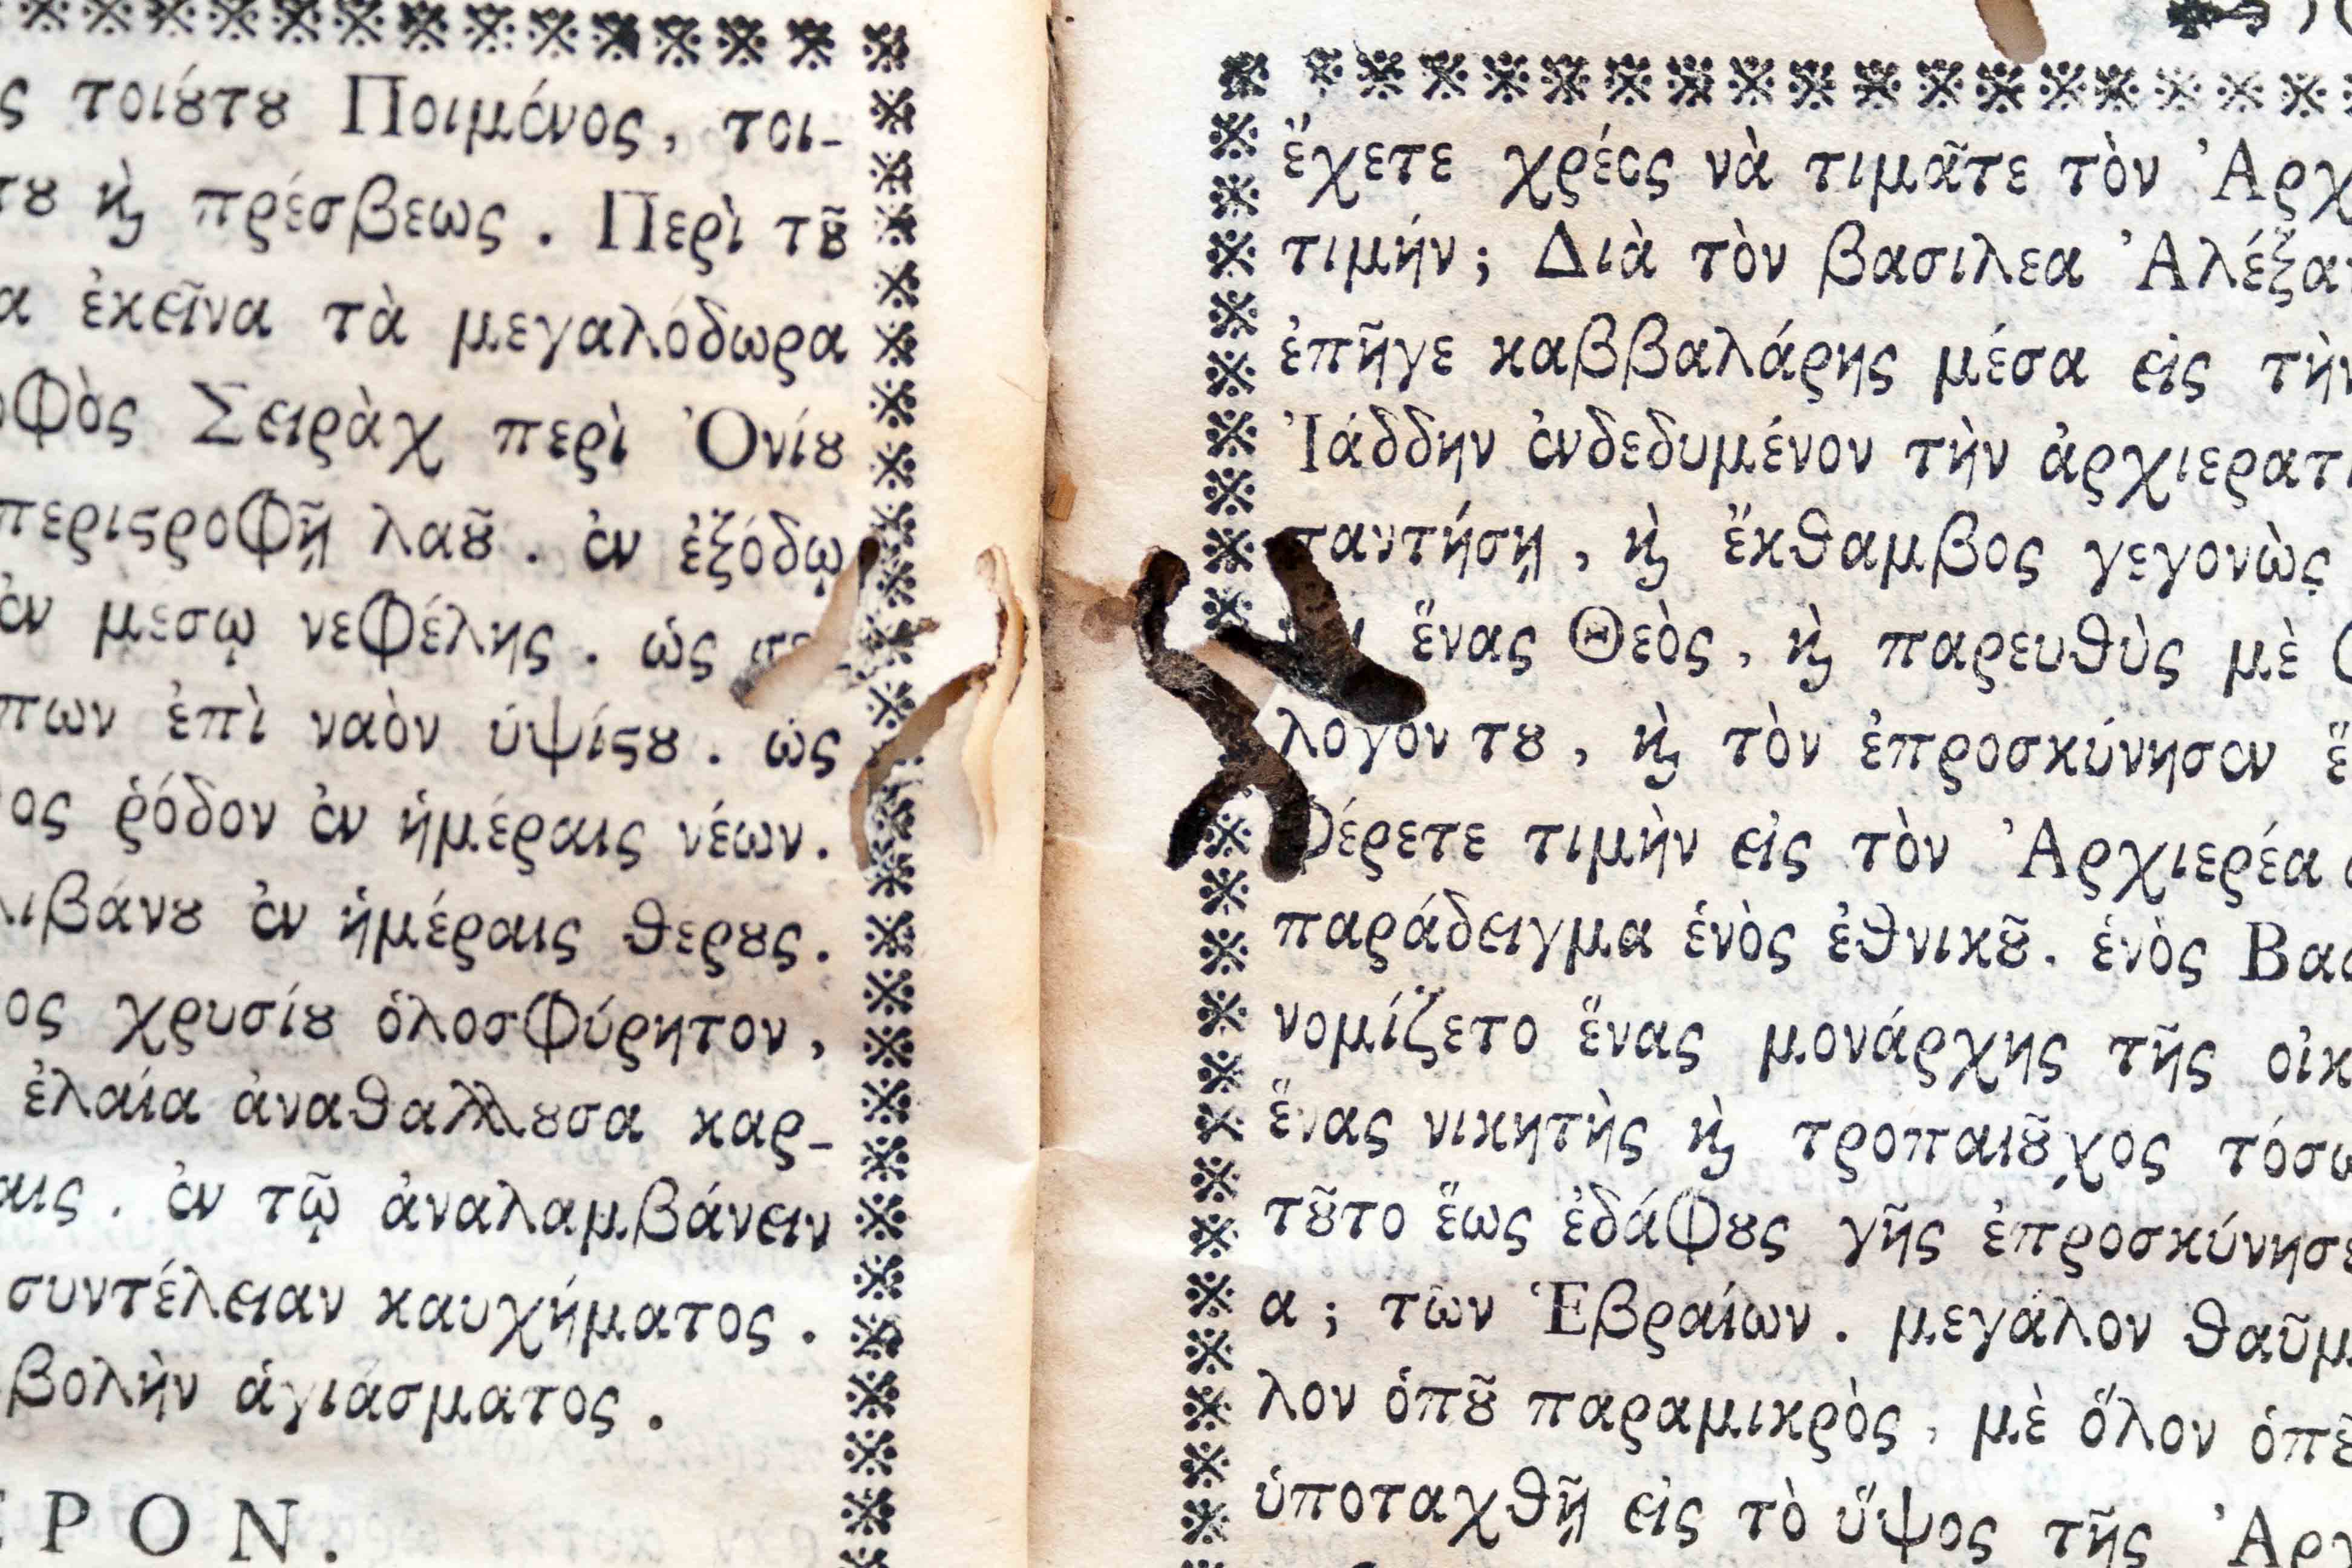 τοιȣ́τȣ Ποιμένος, τοι-
τȣ ϗ̀ πρέσβεως. Περὶ τȣ͂
ἐκεῖνα τὰ μεγαλόδωρα
Σειρὰχ περὶ Ὀνίȣ
περιϛροφῇ λαȣ͂. ἐν ἐξόδῳ
ἐν μέσῳ νεφέλης. ὡς
ἐπὶ ναὸν ὑψίϛȣ. ὡς
ῥόδον ἐν ἡμέραις νέων.
λιβάνȣ ἐν ἡμέραις θέρȣς.
χρυσίȣ ὁλοσφύρητον,
ἐλαία ἀναθαλλȣσα καρ-
αις. ἐν τῷ ἀναλαμβάνειν
συντέλειαν καυχήματος.
βολὴν ἁγιάσματος.
ΡΟΝ.
ἔχετε χρέος νὰ τιμᾶτε τὸν Ἀρχ
τιμήν; Διὰ τὸν βασιλεα Ἀλέξαν
ἐπῆγε καββαλάρης μέσα εἰς τὴν
Ἰάδδην ἐνδεδυμένον τὴν ἀρχιερατι
παντήσῃ, ϗ̀ ἔκθαμβος γεγονὼς
ἕνας Θεὸς, ϗ̀ παρευθὺς μὲ
λόγον τȣ, ϗ̀ τὸν ἐπροσκύνησεν
φέρετε τιμὴν εἰς τὸν Ἀρχιερέα
παράδειγμα ἑνὸς ἐθνικȣ͂. ἑνὸς Βασ
νομίζετο ἕνας μονάρχης τῆς οἰκ
ἕνας νικητὴς ϗ̀ τροπαιȣ͂χος τόσω
τȣ͂το ἕως ἐδάφȣς γῆς ἐπροσκύνησε
α; τῶν Ἑβραίων. μεγάλον θαῦμ
λον ὁπȣ͂ παραμικρὸς, μὲ ὅλον ὁπȣ͂
ὑποταχθῇ εἰς τὸ ὕψος τῆς Ἀρχ